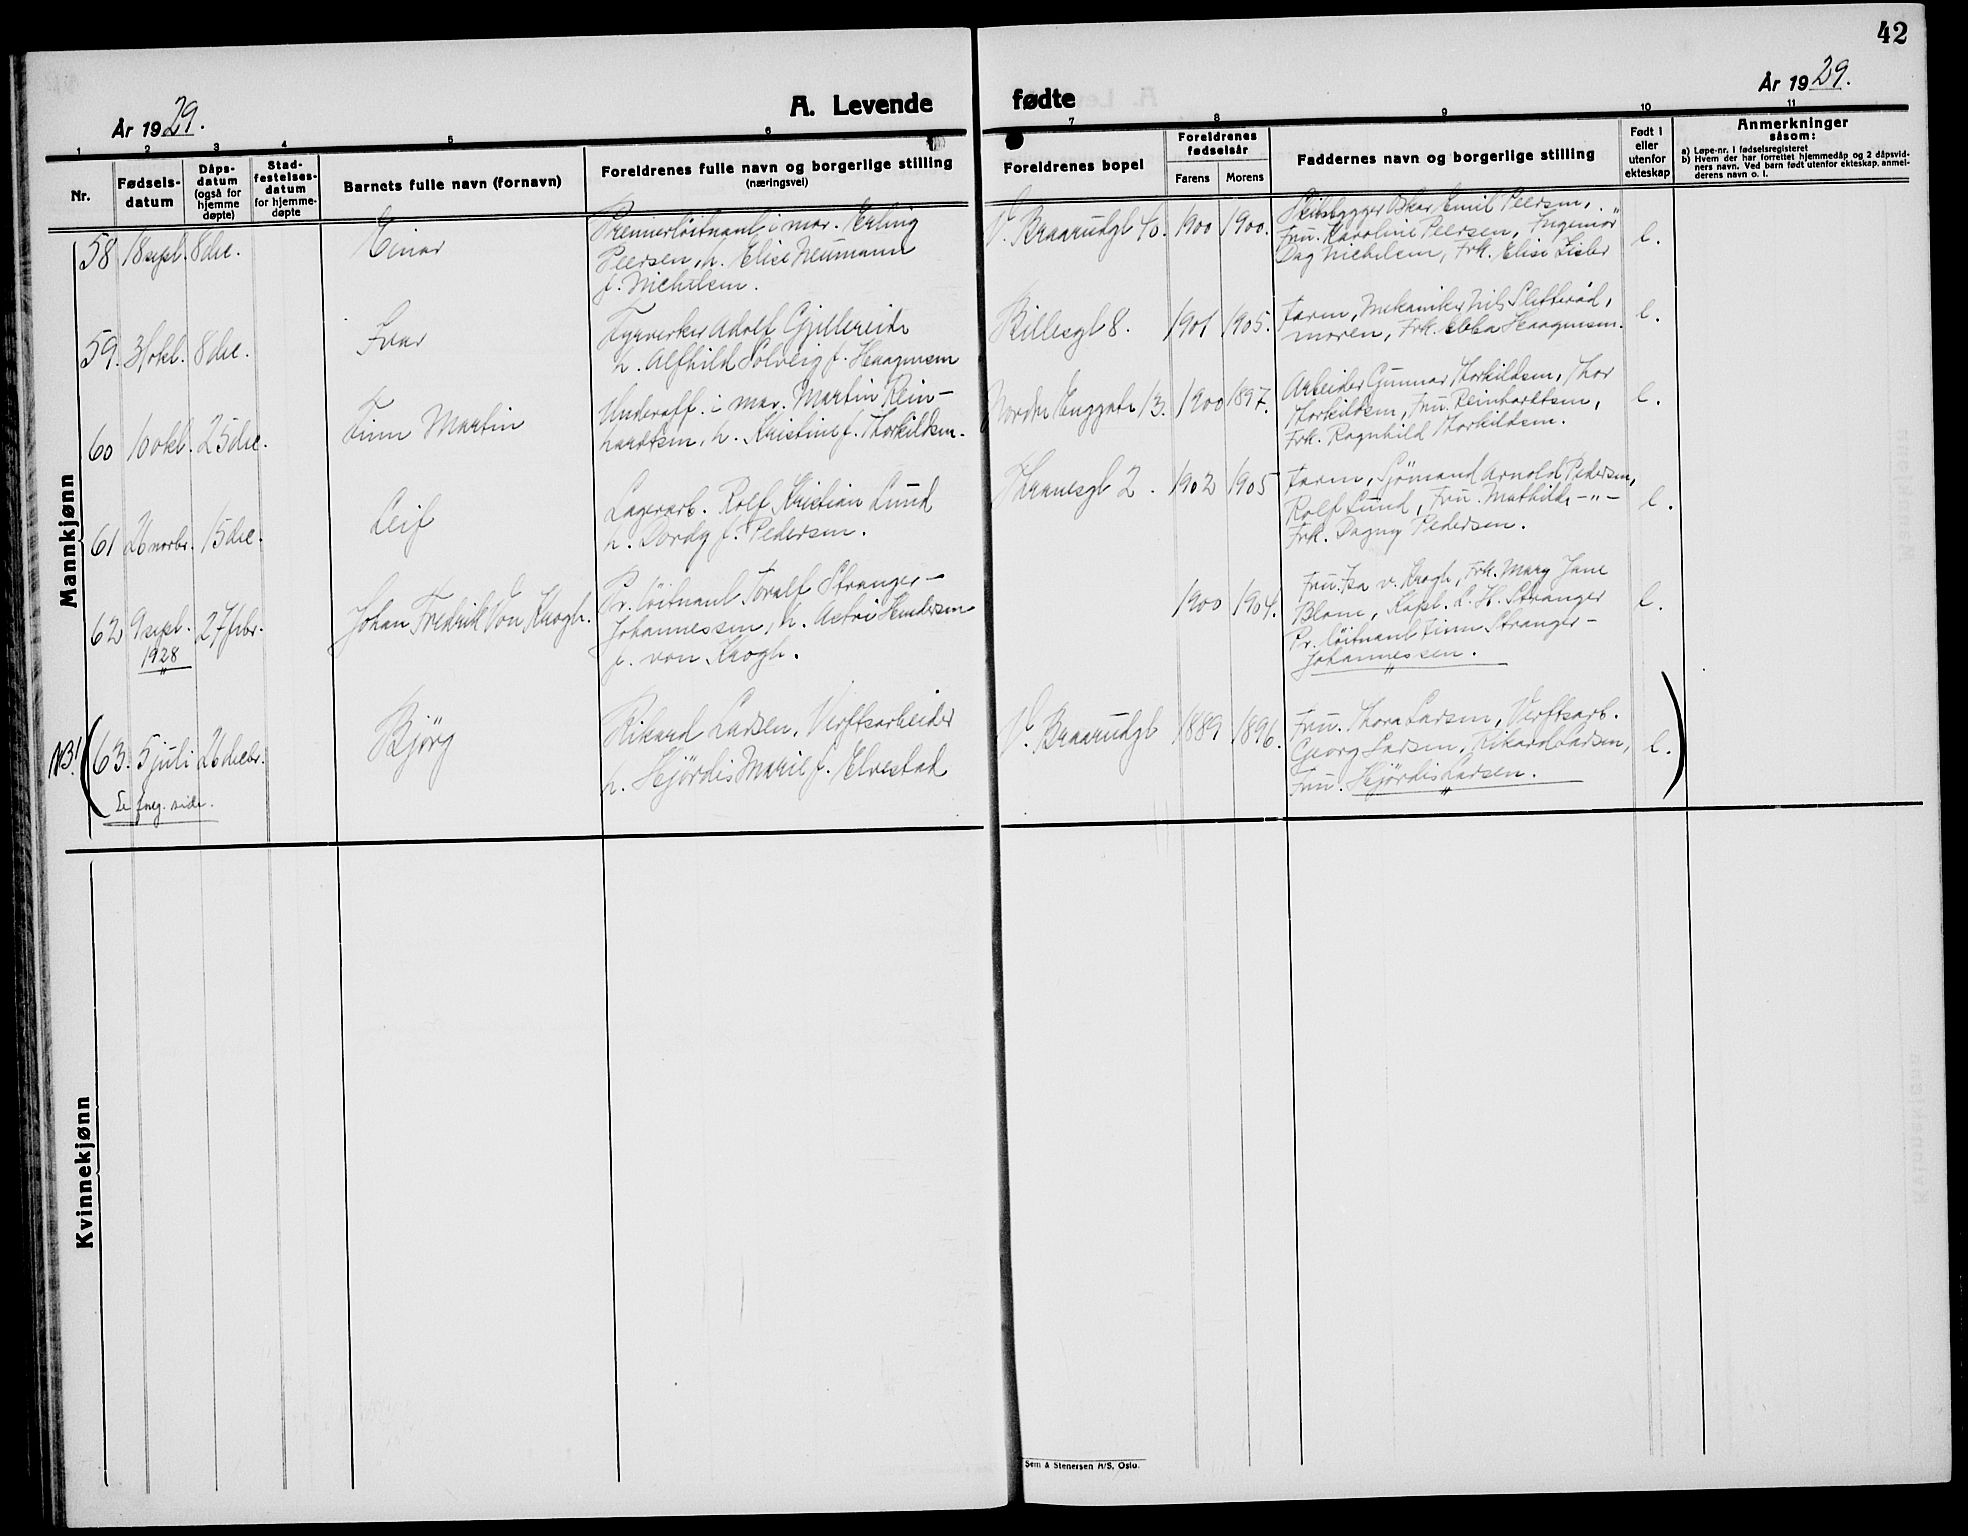 42
År 1929.
A. Levende
fødte
År 1929.
1 2 3 4 5 6 7 8 9 10 11
Nr.
Fødsels-
datum
Dåps-
datum
(også for
hjemme
døpte)
Stad-
festelses-
datum
for hjemme-
døpte
Barnets fulle navn (fornavn)
Foreldrenes fulle navn og borgerlige stilling
(næringsvei)
Foreldrenes bopel
Foreldrenes
fødselsår
Farens Morens
Faddernes navn og borgerlige stilling
Født i
eller
utenfor
ekteskap
Anmerkninger
såsom:
a) Løpe-nr. i fødselsregisteret
b) Hvem der har forrettet hjemmedåp og 2 dåpsvid-
ners navn. Ved barn født utenfor ekteskap, anmel-
derens navn o. l.
Mannkjønn
58 18 sept. 8 dec. Einar
Premierløitnant i mar. Erling
Peersen, h. Elise Neumann
f. Michelsen.
V. Braarudgt 40. 1900 1900.
Skibsbygger Oskar Emil Peersen,
Fru. Karoline Peersen, Ingeniør
Dag Michelsen, Frk. Elise Lisler
e.
59. 31 okt. 8 dec. Ivar
Fyrverker Adolf Gjellereide
h. Alfhild Solveig f. Haagensen
Billesgt 8. 1901 1905.
Faren, Mekaniker Nils Slitterød,
moren, Frk. Ebba Haagensen.
e.
60 10 okt. 25 dec. Finn Martin
Underoff. i mar. Martin Rein-
hardtsen, h. Kristine f. Thorkildsen.
Nordre Enggate 13. 1900 1897.
Arbeider Gunnar Thorkildsen, Thor
Thorkildsen, Fru. Reinhardtsen,
Frk. Ragnhild Thorkildsen.
e.
61 26 novbr. 15 dec. Leif
Lagerarb. Rolf Kristian Lund
h. Dordy f. Pedersen.
Haanesgt 2. 1902 1905
Faren, Sjömand Arnold Pedersen,
Rolf Lund, Fru. Mathilde -"-
Frk. Dagny Pedersen.
e.
62 9 sept. 27 febr. Johan Fredrik Von Krogh.
1928
"
Pr. löitnant Toralf Stranger-
Johannessen, h. Astri Hendersen
f. von Krogh.
1900 1904.
Fru. Isa v. Krogh, Frk. Mary Jane
Blane, Kapt. L. H. Stranger
Pr. löitnant Finn Stranger-
Johannessen.
e.
NB! (63. 5 juli 26 decbr. Björg
Se foreg. side.
Rikard Larsen, Verftsarbeider
h. Hjördis Marie f. Elvestad
V. Braarudgt 1889 1896.
Fru. Thora Larsen, Verftsarb.
Georg Larsen, Rikard Larsen,
Fru. Hjördis Larsen.
e. )
Kvinnekjønn
Sem & Stenersen A/S, Oslo.